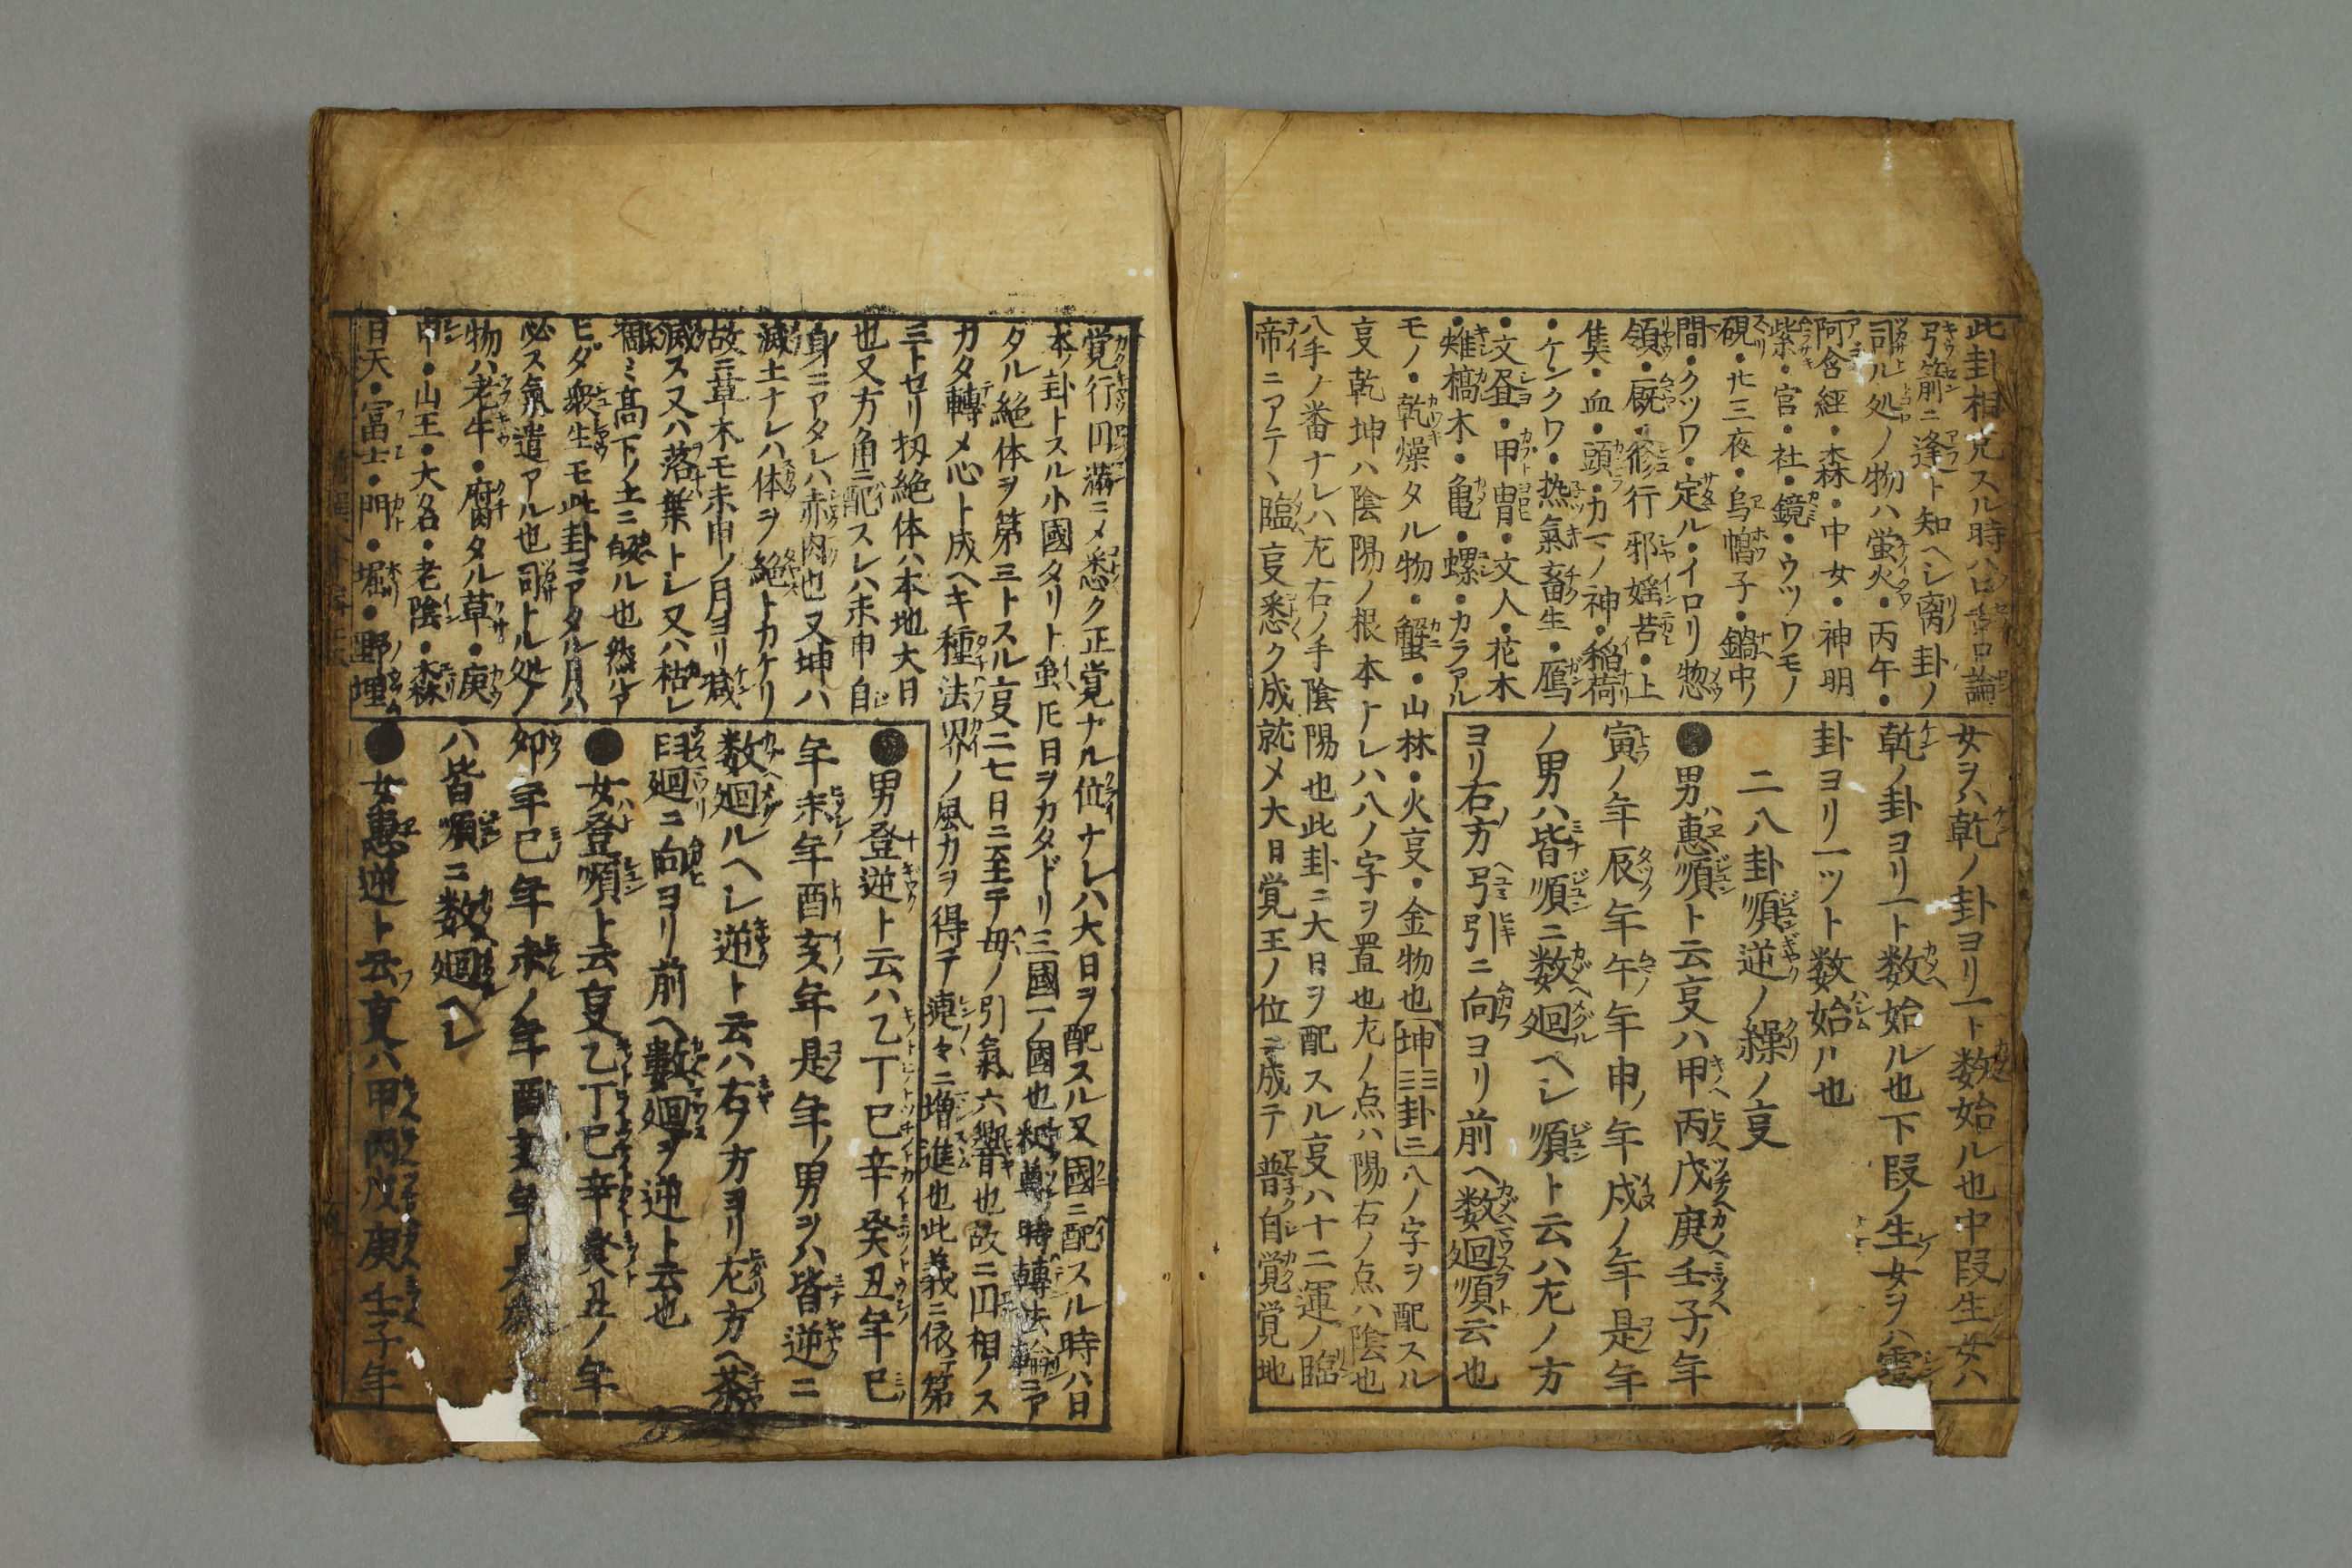 此卦相兌スル時ハ口舌口論
弓箭ニ逢ト知ヘシ离卦ノ
司ル処ノ物ハ蛍火・丙午・
阿含經・森・中女・神明
紫・官・社・鏡・ウツワモノ
硯・廿三夜・烏帽子・鍋中ノ
間・クツワ・定ル・イロリ惣
領・厩・修行邪婬苦・上
隻・血・頭・カマノ神・稲荷
・ケンクワ・热氣畜生・鴈
・文昼・甲冑・文人・花木
・雉槁木・亀・螺・カラアル
モノ・乾燥タル物・蟹・山林・火㕝・金物也坤☷卦三八ノ字ヲ配スル
㕝乾坤ハ陰陽ノ根本ナレハ八ノ字ヲ置也左ノ点ハ陽右ノ点ハ陰也
八手ノ番ナレハ左右ノ手陰陽也此卦ニ大日ヲ配スル㕝ハ十二運ノ臨
帝ニアテヽ臨㕝悉ク成就メ大日覚王ノ位ニ成テ普自覚覚地
女ヲハ乾ノ卦ヨリ一ト数始ル也中段生女ハ
乾ノ卦ヨリ一ト数始ル也下段ノ生女ヲハ
卦ヨリ一ツト数始ル也
二八卦順逆ノ繰ノ㕝
●男惠順ト云㕝ハ甲丙戊庚壬子ノ年
寅ノ年辰年午年申ノ年戍ノ年是年
ノ男ハ皆順ニ数廻ヘシ順ト云ハ左ノ方
ヨリ右方弓引ニ向ヨリ前ヘ数廻順云也
覚行円満ニメ悉ク正覚ナル位ナレハ大日ヲ配スル又國ニ配スル時ハ日
本ノ卦トスル小國タリト虽氏日ヲカタドリ三國一ノ國也釈尊ノ時轉法輪ニア
タル絶体ヲ第三トスル㕝二七日ニ至テ毋ノ引氣六響也故ニ円相ノス
カタ轉メ心ト成ヘキ種法界ノ風カヲ得テ漣々ニ増進也此義ニ依第
三トセリ扨絶体ハ本地大日
也又方角ニ配スレハ未申自
身ニアタレハ赤肉也又坤ハ
滅土ナレハ体ヲ絶トカケリ
故ニ草木モ未申ノ月ヨリ減
滅ス又ハ落葉トレ又ハ枯レ
凋ミ高下ノ土ニ皈ル也然ハ
ヒダ衆生モ此卦ニアタル月ハ
必ス氣遣アル也司トル処ノ
物ハ老牛・腐タル草・庚
申・山王・大名・老陰・森
日天・富士・門・堀・野埋
●男登逆ト云ハ乙丁巳辛癸丑年巳
年未年酉亥年是年ノ男ヲハ皆逆ニ
数廻ルヘシ逆ト云ハ右ノ方ヨリ左方ヘ茶
臼廻ニ向ヨリ前ヘ數廻ヲ逆ト云也
●女登順ト云㕝乙丁巳辛癸丑ノ年
卯年巳年未ノ年酉亥年是歳
ハ皆順ニ数廻ヘシ
●女惠逆ト云㕝ハ甲丙戊庚壬子年